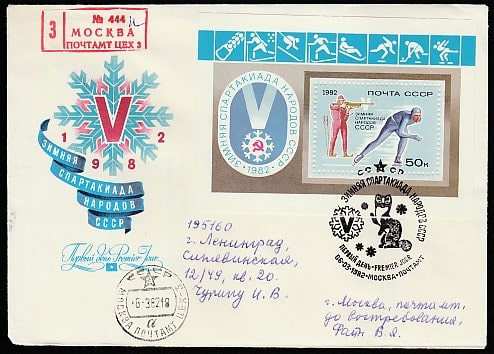 З
№ 444
МОСКВА
ПОЧТАМТ ЦЕХ 3
V
1982
ЗИМНЯЯ
СПАРТАКИАДА
НАРОДОВ
СССР
Первый день Premier Jour
ЗИМНЯЯ СПАРТАКИАДА НАРОДОВ СССР
V
• 1982 •
1982 ПОЧТА СССР
ЗИМНЯЯ
СПАРТАКИАДА
НАРОДОВ
СССР
50к
СССР
V ЗИМНЯЯ СПАРТАКИАДА НАРОДОВ СССР
ПЕРВЫЙ ДЕНЬ • PREMIER JOUR
06•03•1982 • МОСКВА • ПОЧТАМТ
СССР
-6-38218
а
МОСКВА ПОЧТАМТ ЦЕХ 3
195160
г. Ленинград,
Синявинская,
12/49, кв. 20.
Чурину И.В.
г. Москва, почтамт.
до востребования,
В.Я.